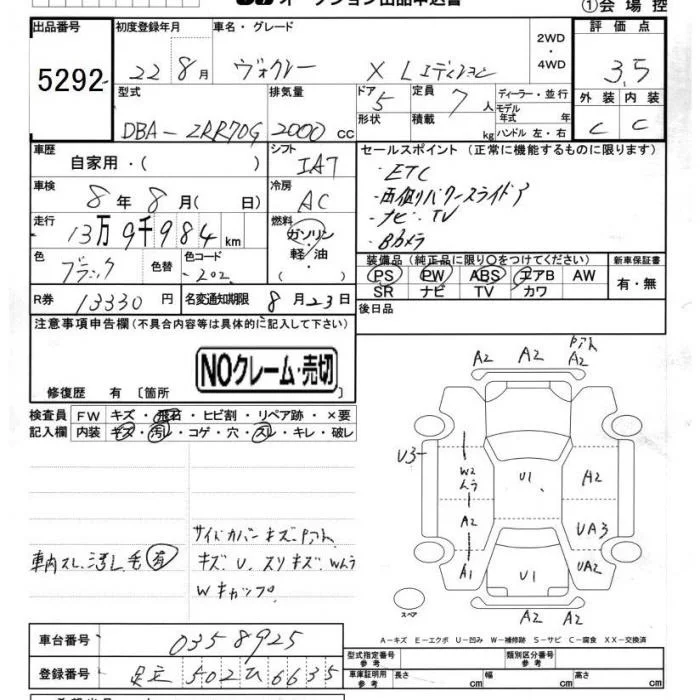 オークション出品申込書
①会場控
出品番号 初度登録年月 車名・グレード 2WD・4WD 評価点
5292 22 8月 ヴォクシー X Lエディション 3.5
型式 排気量 ドア 5 定員 7人 ディーラー・並行 外装 内装
形状 積載 kg モデル年式 年 ハンドル 左・右
DBA-ZRR70G 2000cc C C
車歴 自家用・( ) シフト IA7 セールスポイント (正常に機能するものに限ります)
・ETC
車検 8年 8月( 日) 冷房 AC ・両側パワースライドドア
・ナビ・TV
走行 13万9千984km 燃料 ガソリン・軽油 ・Bカメラ
色 ブラック 色替 色コード 202 装備品(純正品に限り○をつけてください) 新車保証書
PS PW ABS エアB AW 有・無
SR ナビ TV カワ
R券 13330円 名変通知期限 8月23日 後日品
注意事項申告欄(不具合内容等は具体的に記入して下さい)
NOクレーム・売切
修復歴 有 [箇所 ]
検査員 FW キズ・飛石・ヒビ割・リペア跡・×要
記入欄 内装 キズ・汚レ・コゲ・穴・スレ・キレ・破レ
A2 A2 A2
U3
W2 ムラ U1 A2
A2 UA3
A1 U1 UA2
A2 A2
スペア
車内スレ.汚レ.毛有
サイドカバーキズ
キズ U. スリキズ. Wムラ
Wキャップ
A-キズ E-エクボ U-凹み W-補修跡 S-サビ C-腐食 XX-交換済
車台番号 0358925
型式指定番号 参考 類別区分番号 参考
登録番号 足立 502 ひ 6635
車庫証明用 参考 長さ cm 幅 cm 高さ cm